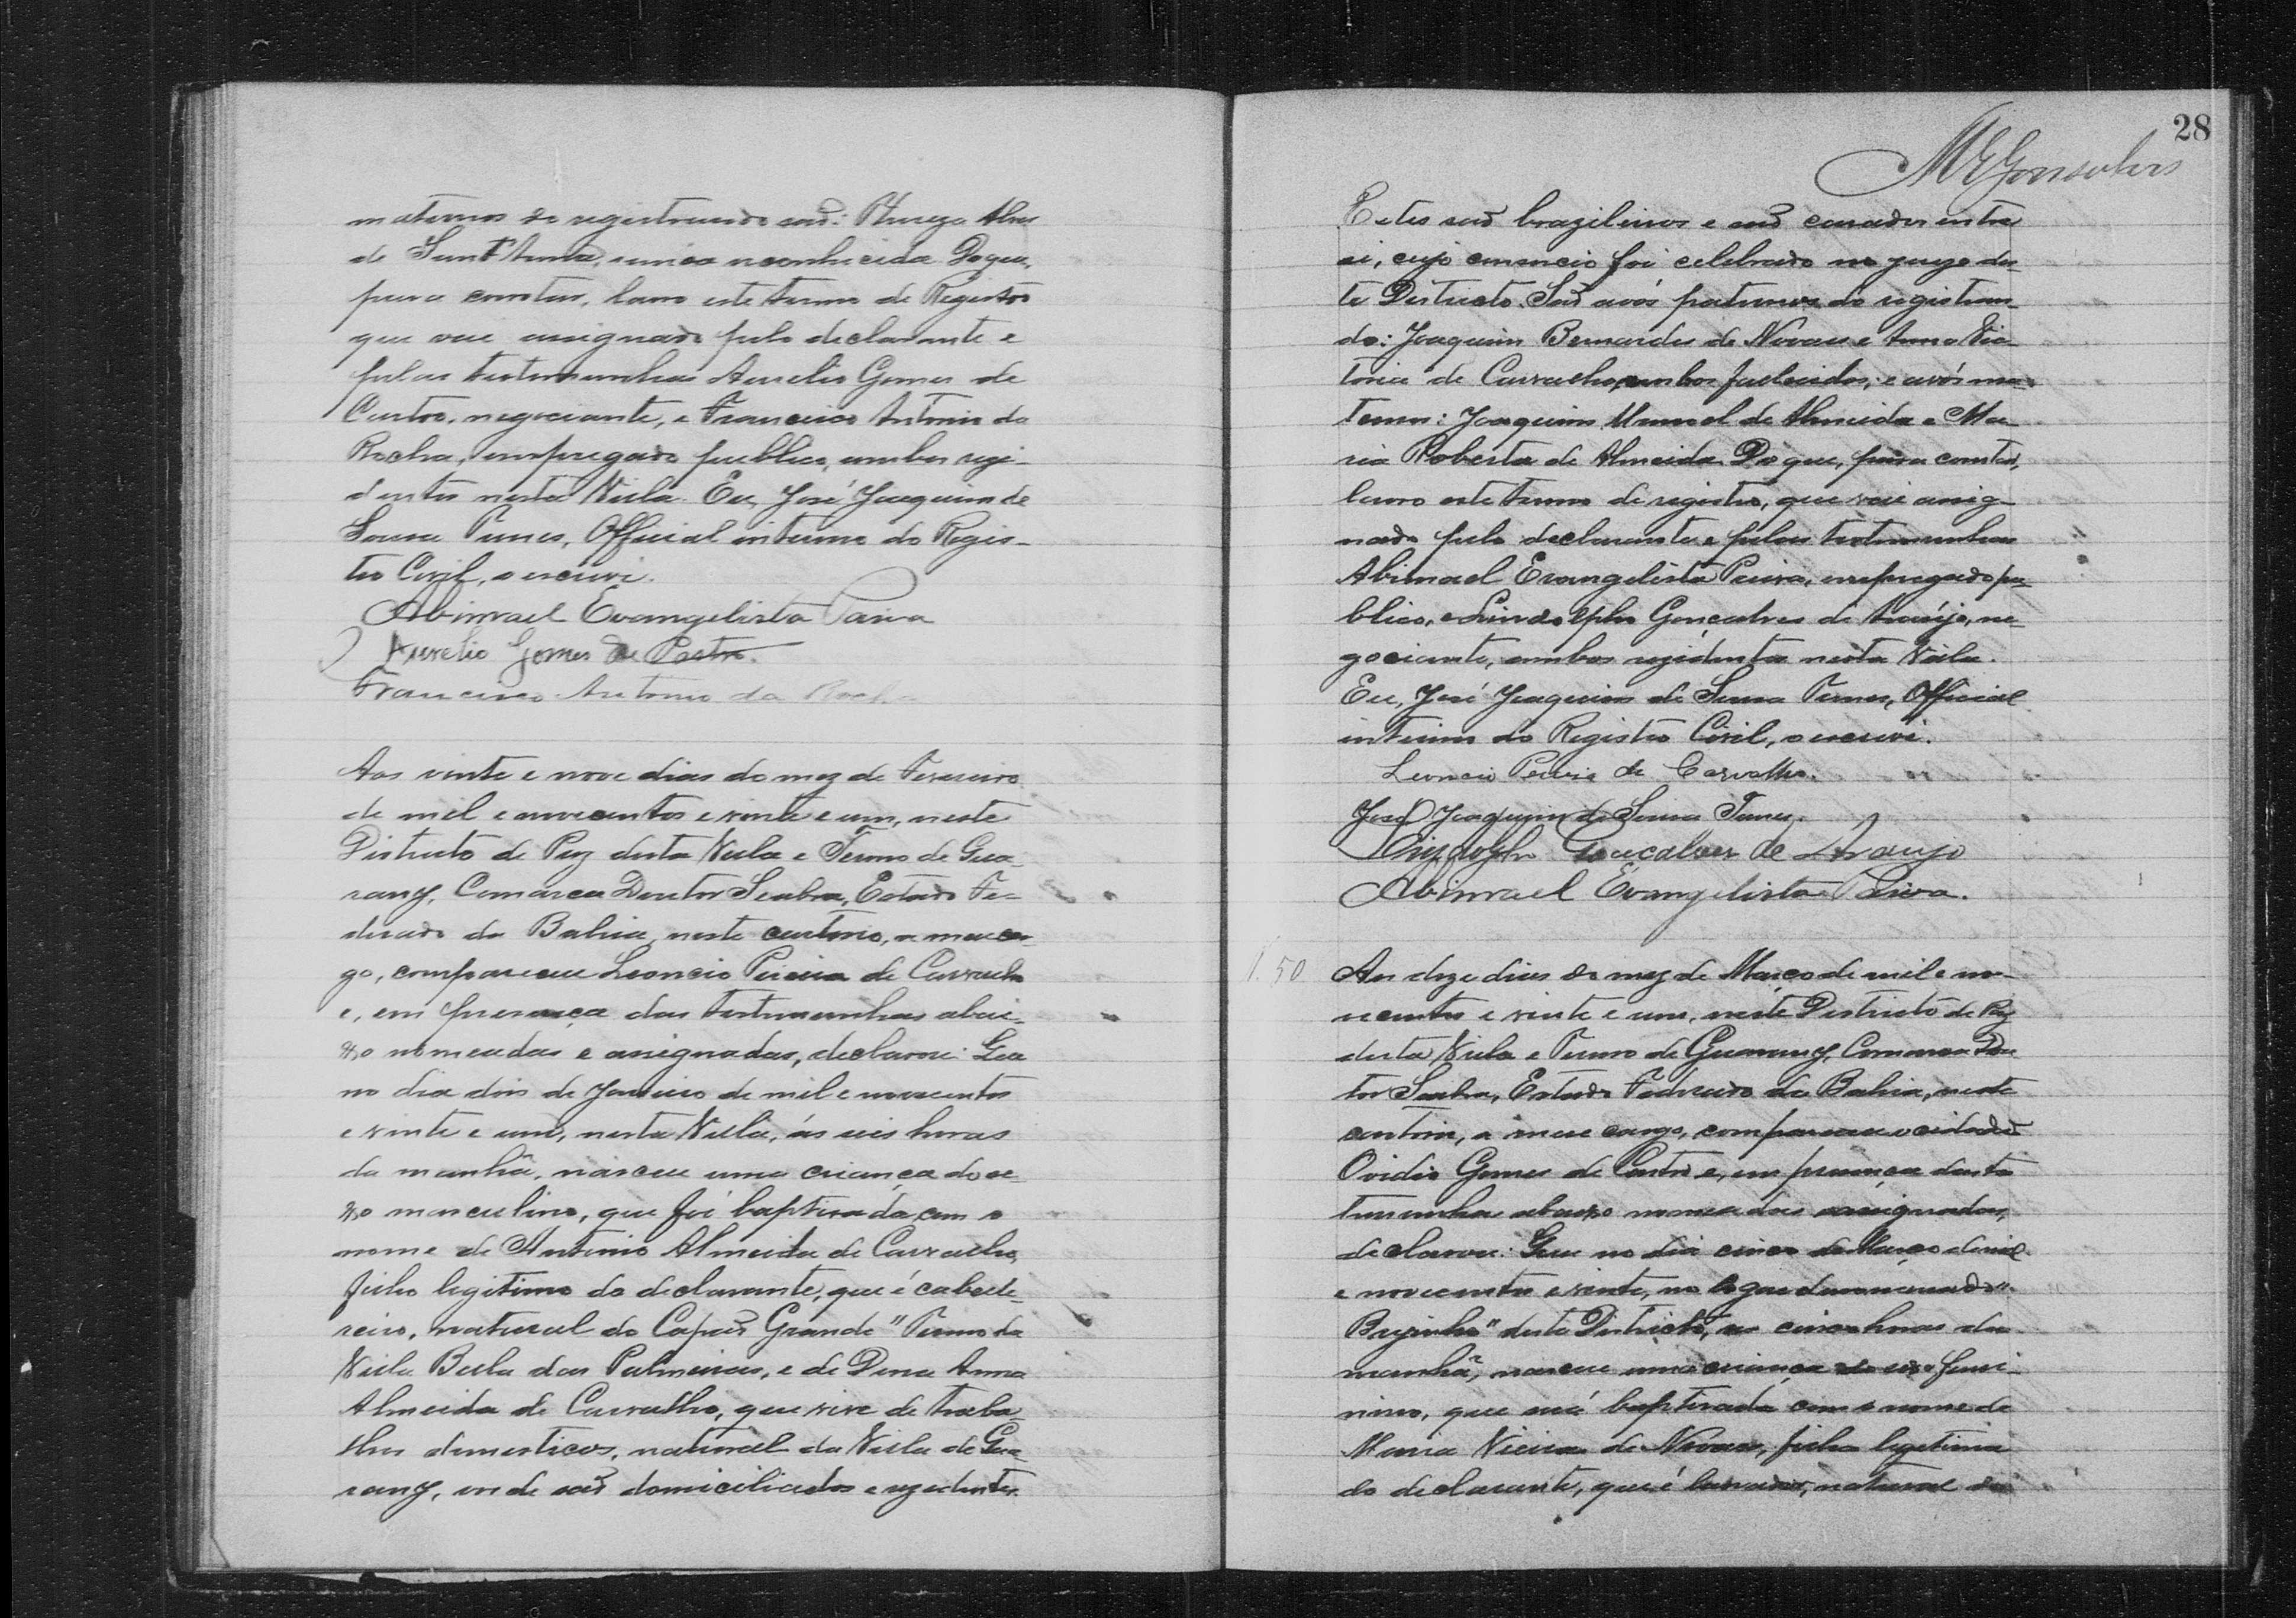 maternos do registrando são: Thereza Alves
de Sant'Anna, unica reconhecida. Do que,
para constar, lavro este termo de Registro
que vae assignado pelo declarante e
pelas testemunhas Aurelio Gomes de
Castro, negociante, e Francisco Antonio da
Rocha, empregado publico, ambos rezi-
dentes nesta Villa. Eu, José Joaquim de
Souza Tunes, Official interino do Regis-
tro Civil, o escrevi.
Abimael Evangelista Paiva
Aurelio Gomes de Castro.
Francisco Antonio da Rocha
Aos vinte e nove dias do mez de Fevereiro
de mil e novecentos e vinte e um, neste
Districto de Paz desta Villa e Termo de Gua-
rany, Comarca Doutor Seabra, Estado Fe-
derado da Bahia, neste cartorio, a meu car-
go, compareceu Leoncio Pereira de Carvalho
e, em presença das testemunhas abai-
xo nomeadas e assignadas, declarou: Que
no dia dois de Janeiro de mil e novecentos
e vinte e um, nesta Villa, ás seis horas
da manhã, nasceu uma criança do se-
xo masculino, que foi baptisada com o
nome de Antonio Almeida de Carvalho,
filho legitimo do declarante, que é cabelle-
reiro, natural do Capão Grande" Termo da
Villa Bella das Palmeiras, e de Dona Anna
Almeida de Carvalho, que vive de traba-
lhos domesticos, natural da Villa de Gua-
rany, onde são domiciliados e rezidentes.
28
MEGonsalves
Estes são brazileiros e são casados entre
si, cujo consorcio foi celebrado no juizo des-
te Districto. São avós paternos do registran-
do: Joaquim Bernardes de Novaes e Anna Vic-
toria de Carvalho, ambos fallecidos; e avós ma-
ternos: Joaquim Manoel de Almeida e Ma-
ria Roberta de Almeida. Do que, para constar,
lavro este termo de registro, que vae assig-
nado pelo declarante e pelas testemunhas
Abimael Evangelista Paiva, empregado pu-
blico, e Lindolpho Gonçalves de Araújo, ne-
gociante, ambos rezidentes nesta Villa.
Eu, José Joaquim de Souza Tunes, Official
interino do Registro Civil, o escrevi.
Leoncio Pereira de Carvalho.
José Joaquim de Souza Tunes.
Lindolpho Goncalves de Araujo
Abimael Evangelista Paiva.
N. 50
Aos doze dias do mez de Março de mil e no-
vecentos e vinte e um, neste Districto de Paz
desta Villa e Termo de Guarany, Comarca Dou-
tor Seabra, Estado Federado da Bahia, neste
cartorio, a meu cargo, compareceu o cidadão
Ovidio Gomes de Castro e, em presença das tes-
temunhas abaixo nomeadas e assignadas,
declarou: Que no dia cinco de Março de mil
e novecentos e vinte, no logar denominado "
Brejinho" deste Districto, as cinco horas da
manhã, nasceu uma criança do sexo femi-
nino, que será baptisada com o nome de
Maria Vieira de Novaes, filha legitima
do declarante, que é lavrador, natural da